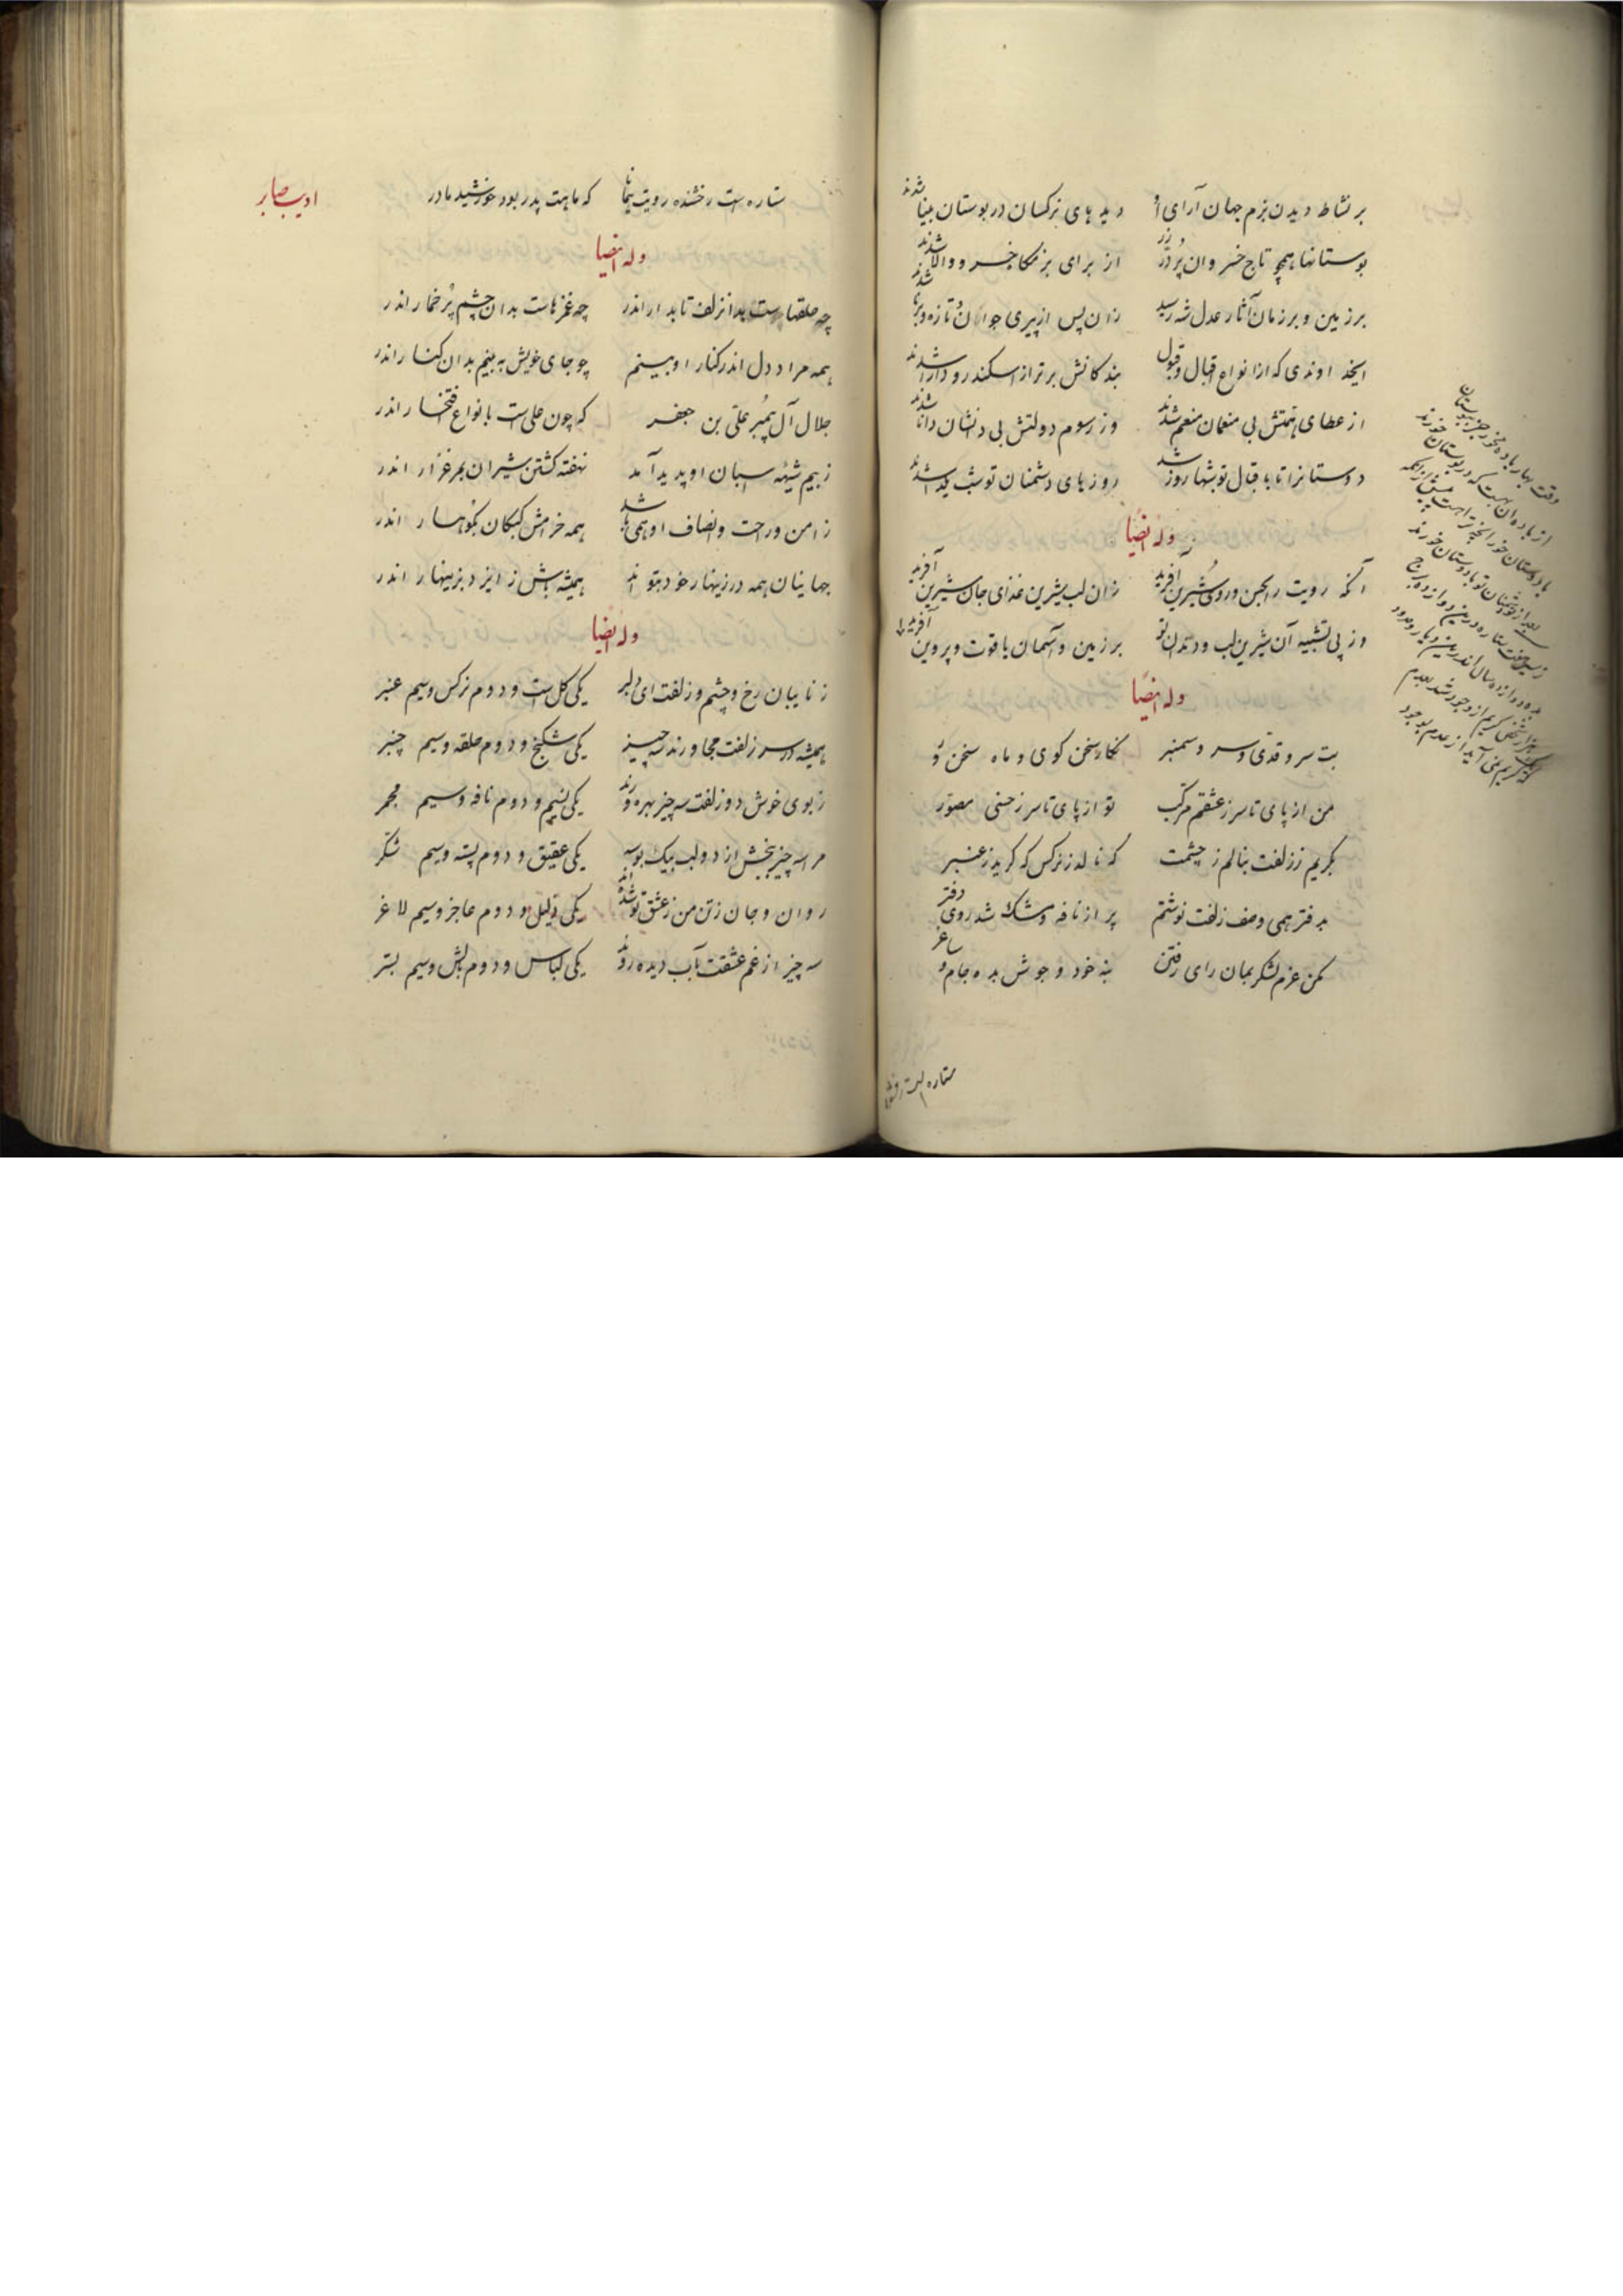 بر نشاط دیدن بزم جهان آرای او دیدهای نرکسان در بوستان بینا شدند
بوستانها همچو تاج خسروان پر درّ و زر از برای بزمکاه خسرو والا شدند
بر زمین و بر زمان آثار عدل شه رسید زان پس از پیری جوان و تازه و برنا شدند
ایخداوندی که از انواع اقبال و قبول بندکانش برتر از اسکندر و دارا شدند
از عطای همتش بی منعمان منعم شدند وز رسوم دولتش بی دانشان دانا شدند
دوستانرا تا باقبال تو شبها روز شد روزهای دشمنان تو شب یلدا شدند
وله ایضا
آنکه رویت را بحسن و روی شیرین آفرید زان لب شیرین غذای جان شیرین آفرید
وز پی تشبیه آن شیرین لب و دندان تو بر زمین و آسمان یاقوت و پروین آفرید
وله ایضا
بت سرو قدی و سرو سمنبر نکار سخن کوی و ماه سخن ور
من از پای تا سر ز عشقم مرکب تو از پای تا سر ز حسنی مصور
بکریم ز زلفت بنالم ز چشمت که نالد ز نرکس که کرید ز عنبر
بدفتر همی وصف زلفت نوشتم پر از نافه مشک شد روی دفتر
مکن عزم لشکر بمان رای رفتن بنه خود و جوشن بده جام و ساغر
وقت بهار باده مخور جز ببوستان
از باده آن بهست که در بوستان خورند
با دوستان خور آنچه ترا هست پیش از آنکه
بعد از تو دشمنان تو با دوستان خورند
زیر هفت ستاره درین دوازده برج
به ده دوازده سال اندرین دیار وجود
هزار شخص کریم از وجود شد بعدم
که یک کریم نمی آید از عدم بوجود
ستاره است رخشنده
ادیب صابر
ستاره است رخشنده رویت نکارا که ماهت پدر بود خورشید مادر
وله ایضا
چه حلقهاست بدان زلف تابدار اندر چه غمزهاست بدان چشم پر خمار اندر
همه مراد دل اندر کنار او بینم چو جای خویش به بینم بدان کنار اندر
جلال آل پیمبر علی بن جعفر که چون علی است بانواع افتخار اندر
ز بیم شیهه اسبان او پدید آمد نهفته کشتن شیران بمرغزار اندر
ز امن و راحت و انصاف او همی باشد همه خرامش کبکان بکوهسار اندر
جهانیان همه در زینهار خود بتواند همیشه باش ز ایزد بزینهار اندر
وله ایضا
ز نایبان رخ و چشم و زلفت ای دلبر یکی کل است و دوم نرکس و سیم عنبر
همیشه در سر زلفت مجاورند سه چیز یکی شکنج و دوم حلقه و سیم چنبر
ز بوی خوش دو زلفت سه چیز بهره ورند یکی نسیم و دوم نافه و سیم مجمر
مرا سه چیز ببخش از دو لب بیک بوسه یکی عقیق و دوم پسته و سیم شکر
روان و جان و تن من ز عشق تو شده اند یکی ذلیل و دوم عاجز و سیم لاغر
سه چیز از غم عشقت بآب دیده روند یکی لباس و دوم بالش و سیم بستر